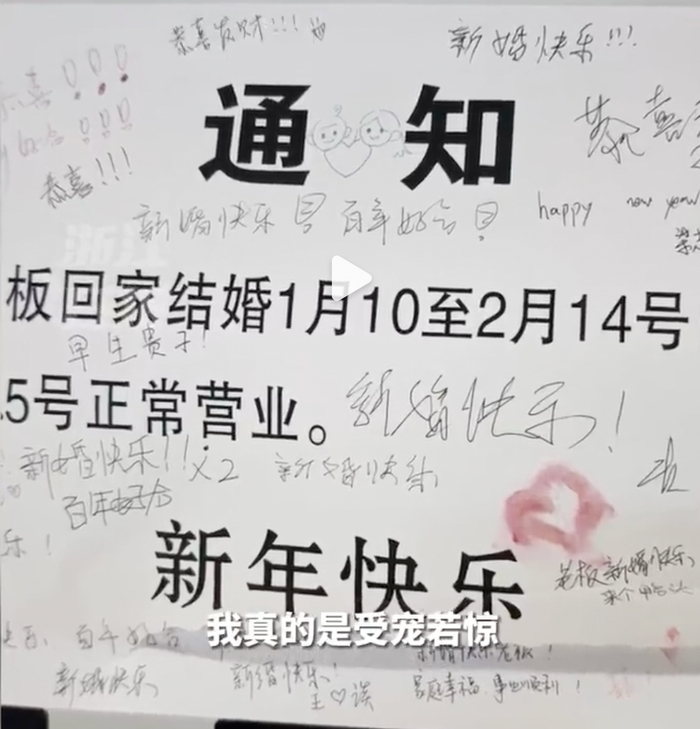 恭喜发财!!!
新婚快乐!!!
恭喜!!!
恭喜
通知
恭喜!!!
新婚快乐
百年好合
happy new year
浙江
板回家结婚1月10至2月14号
早生贵子!
5号正常营业。
新婚快乐!
新婚快乐!! x2
新婚快乐
百年好合
乐!
新年快乐
老板新婚快乐
我真的是受宠若惊
百年好合
新婚快乐老板!
新婚快乐
新婚快乐!
家庭幸福 事业顺利!